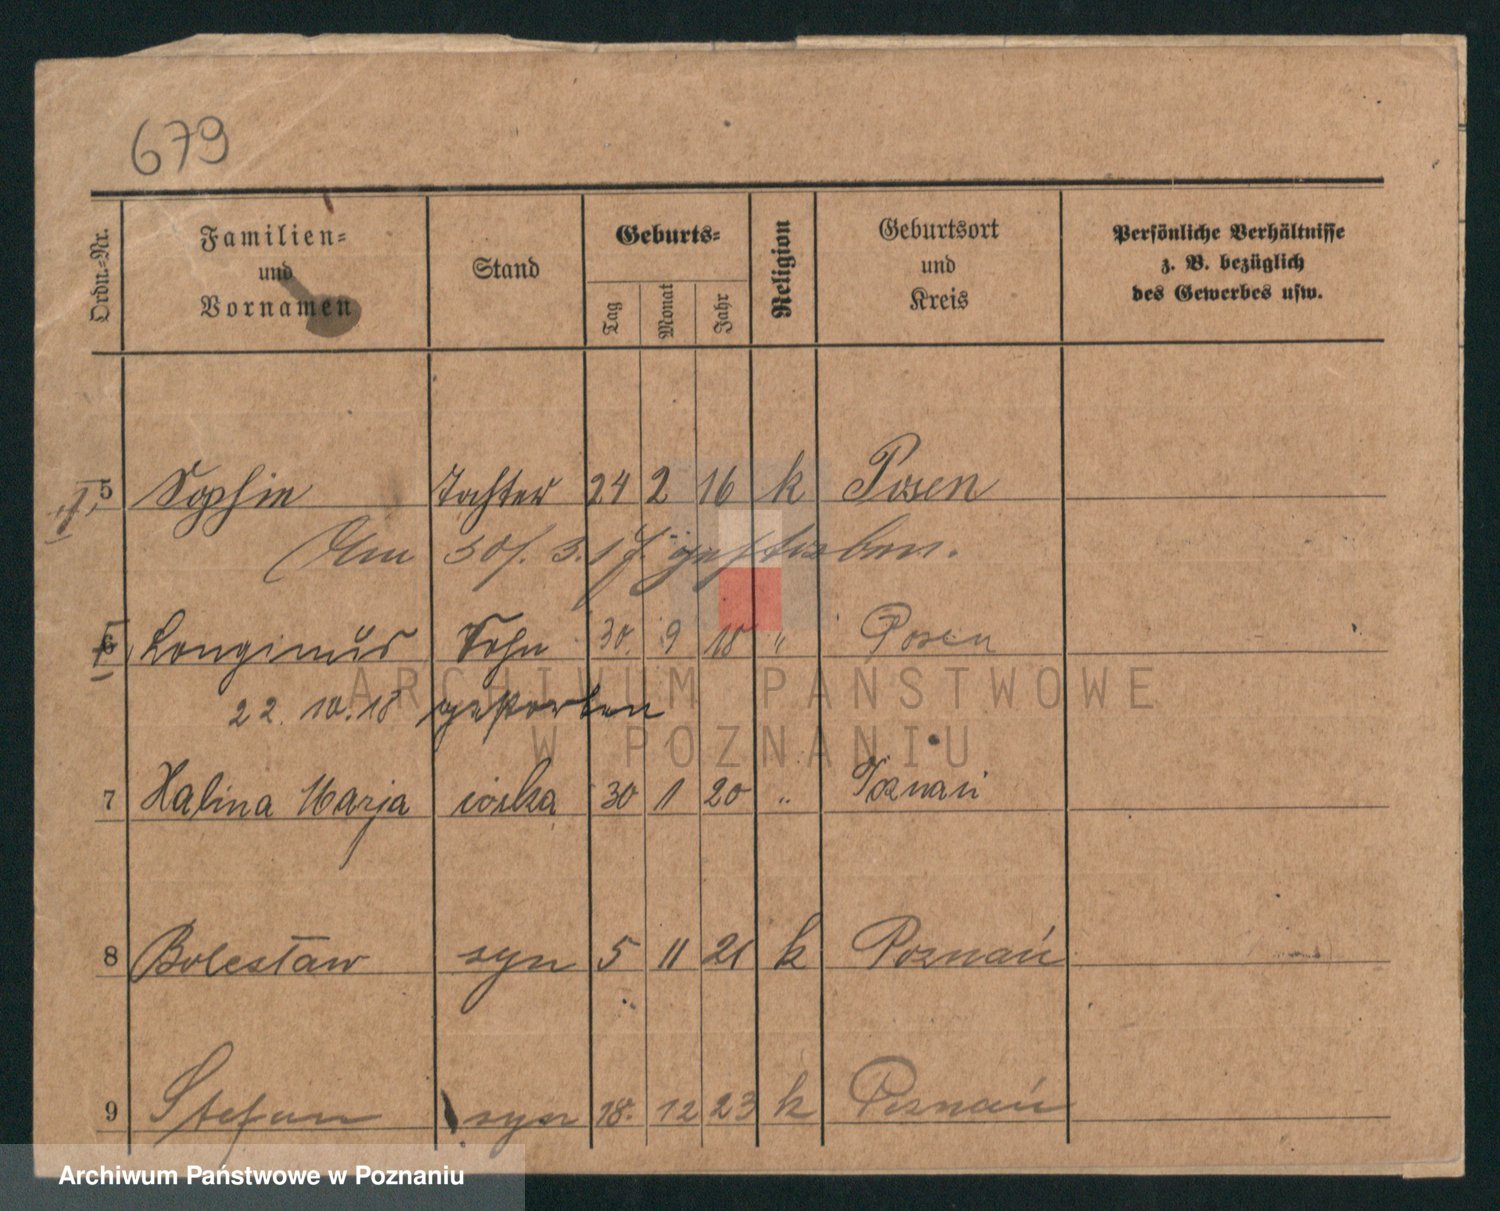 679
Ordn.-Nr. Familien- und Vornamen Stand Geburts- Tag Monat Jahr Religion Geburtsort und Kreis Persönliche Verhältnisse z. B. bezüglich des Gewerbes usw.
5 Sophie Tochter 24 2 16 k Posen
Am 30/. 3. 17 gestorben.
6 Longinus Sohn 30. 9 18 " Posen
22. 10. 18 gestorben
7 Halina Marja córka 30 1 20 " Poznań
8 Bolesław syn 5 11 21 k Poznań
9 Stefan syn 18. 12 23 k Poznań
ARCHIWUM PAŃSTWOWE
W POZNANIU
Archiwum Państwowe w Poznaniu